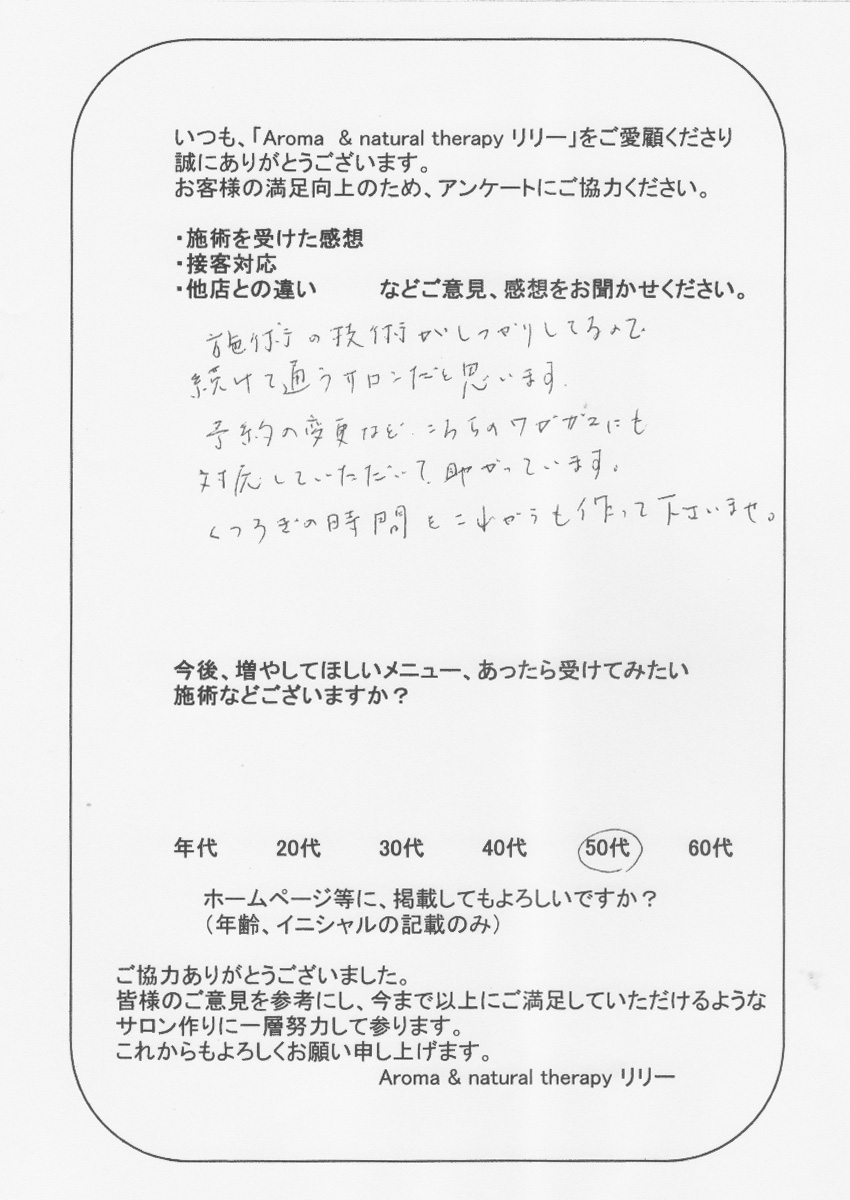 いつも、「Aroma & natural therapy リリー」をご愛顧くださり
誠にありがとうございます。
お客様の満足向上のため、アンケートにご協力ください。
・施術を受けた感想
・接客対応
・他店との違い などご意見、感想をお聞かせください。
施術の技術がしっかりしてるので
続けて通うサロンだと思います.
予約の変更など、こちらのワガママにも
対応していただいて、助かっています。
くつろぎの時間をこれからも作って下さいませ。
今後、増やしてほしいメニュー、あったら受けてみたい
施術などございますか？
年代 20代 30代 40代 50代 60代
ホームページ等に、掲載してもよろしいですか？
（年齢、イニシャルの記載のみ）
ご協力ありがとうございました。
皆様のご意見を参考にし、今まで以上にご満足していただけるような
サロン作りに一層努力して参ります。
これからもよろしくお願い申し上げます。
Aroma & natural therapy リリー